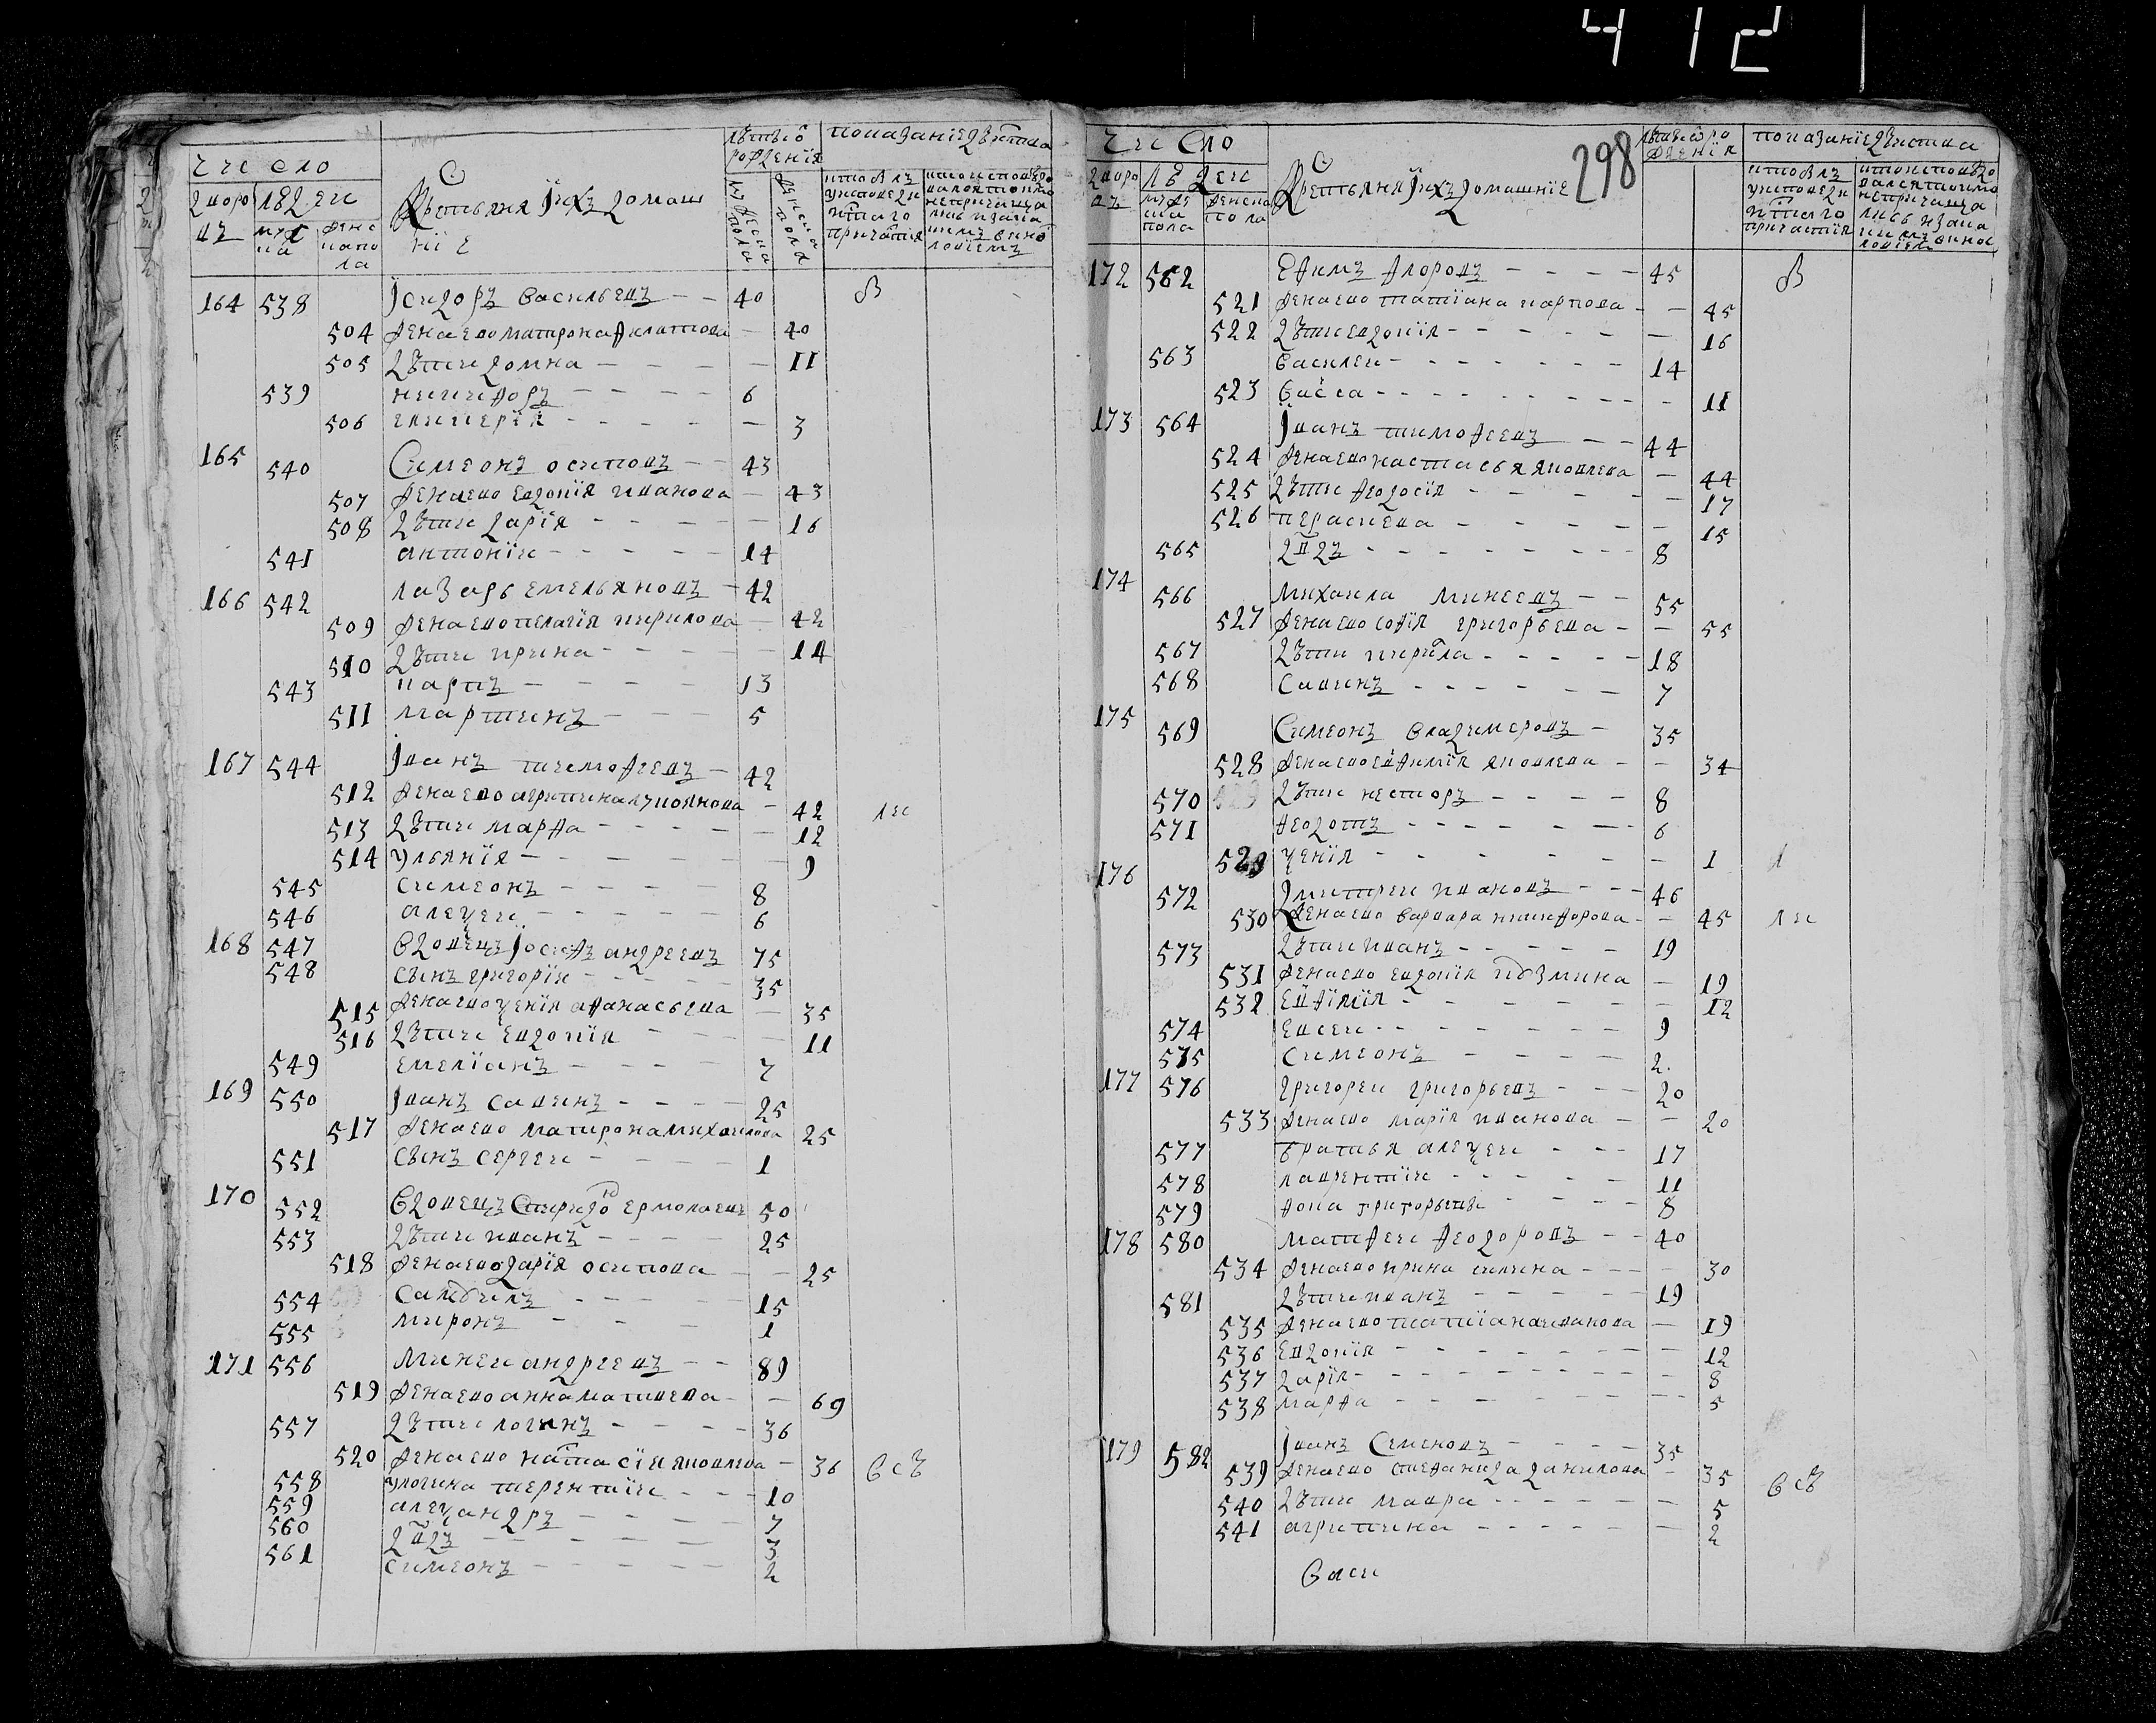 412
число
дворовъ
людеи
мужска
женска пола
крестьяня ихъ домашние
лѣтъ ѿ рождения
мужеска пола
женска пола
показание действа
164 538 Ісидоръ васильевъ - - 40
504 жена ево матрона филатова - 40
505 дѣти домна - - - - 11
539 никифоръ - - - - 6
506 гликерїя - - - - - 3
165 540 Симеонъ осиповъ - - 43
507 жена ево евдокїя иванова - 43
508 дѣти дарїя - - - - 16
541 антонїи - - - - 14
166 542 лазарь емельяновъ - 42
509 жена ево пелагїя кирилова - 42
510 дѣти ирина - - - - 14
543 карпъ - - - - 13
511 мартинъ - - - 5
167 544 Іванъ тимофеевъ - 42
512 жена ево агрипина лукоянова - 42 ли
513 дѣти марфа - - - - - 12
514 ульянїя - - - - - 9
545 симеонъ - - - - 8
546 алеѯеи - - - - - 6
168 547 вдовецъ Іосифъ андреевъ 75
548 сынъ григорїи - - - - 35
515 жена ево ѯенїя афанасьева - 35
516 дѣти евдокїя - - - 11
549 емелїанъ - - - 7
169 550 Іванъ савинъ - - - - 25
517 жена ево матрона михаилова 25
551 сынъ сергеи - - - - 1
170 552 вдовецъ Спиридо ермолаевъ 50
553 дѣти иванъ - - - - 25
518 жена ево дарїя осипова - - 25
554 самоилъ - - - - 15
555 миронъ - - - 1
171 556 минеи андреевъ - - 89
519 жена ево анна матвеева - - 69
557 дѣти логинъ - - - - 36
520 жена ево настасїя яковлева - 36 всѣ
558 у логина терентїи - - - 10
559 алеѯандръ - - - - 7
560 двдъ - - - - - 3
561 симеонъ - - - - - 2
298
число
дворовъ
людеи
мужеска пола
женска пола
крестьяня ихъ домашнїе
показанїе действа
172 562 Ефимъ фроловъ - - - - 45
521 жена ево татїана карпова - - 45
522 дѣти евдокїя - - - - - - 16
563 василеи - - - - - - - 14
523 васса - - - - - - - - 11
173 564 Іванъ тимофеевъ - - 44
524 жена ево настасья яковлева - 44
525 дѣти феодосїя - - - - - - 17
526 пераскева - - - - - 15
565 двдъ - - - - - - - - 8
174 566 михаила минеевъ - - 55
527 жена ево софїя григорьева - - 55
567 дѣти кирила - - - - - 18
568 савинъ - - - - - - 7
175 569 Симеонъ владимеровъ - 35
528 жена ево евфимїя яковлева - - 34
570 дѣти несторъ - - - - 8
571 федотъ - - - - - - 6
529 ѯенїя - - - - - - 1
176 572 Димитреи ивановъ - - - 46
530 жена ево варвара никифорова - - 45 ли
573 дѣти иванъ - - - - - 19
531 жена ево евдокїя козмина - 19
532 евфимїя - - - - - - 12
574 евсеи - - - - - - - 9
575 симеонъ - - - - 2
177 576 григореи григорьевъ - - - 20
533 жена ево марїя иванова - - 20
577 братья алеѯеи - - - 17
578 лаврентїи - - - - 11
579 фока григорьевы - - - - 8
178 580 матфеи феодоровъ - - 40
534 жена ево ирина силина - - - 30
581 дѣти иванъ - - - - - 19
535 жена ево татїана иванова - 19
536 евдокїя - - - - - - - 12
537 дарїя - - - - - - - 8
538 марфа - - - - - - 5
179 582 Іванъ Семеновъ - - - - 35
539 жена ево стефанида данилова - 35 всѣ
540 дѣти мавра - - - - - - 5
541 агрипина - - - - - - 2
васи